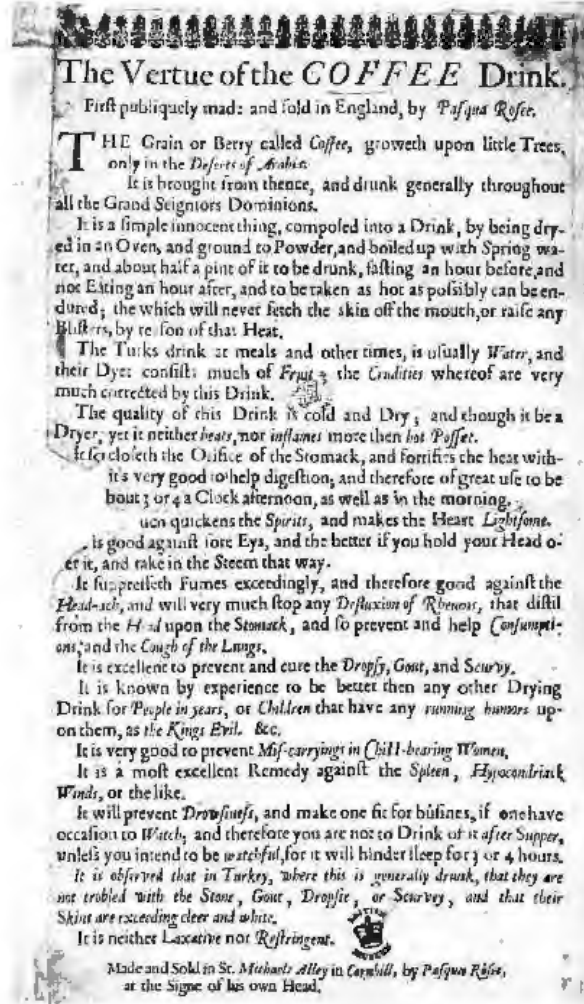 The Vertue of the COFFEE Drink.
First publiquely made and sold in England, by Pasqua Rosee.
THE Grain or Berry called Coffee, groweth upon little Trees,
only in the Deserts of Arabia.
It is brought from thence, and drunk generally throughout
all the Grand Seigniors Dominions.
It is a simple innocent thing, composed into a Drink, by being dry-
ed in an Oven, and ground to Powder, and boiled up with Spring wa-
ter, and about half a pint of it to be drunk, fasting an hour before, and
not Eating an hour after, and to be taken as hot as possibly can be en-
dured; the which will never fetch the skin off the mouth, or raise any
Blisters, by reason of that Heat.
The Turks drink at meals and other times, is usually Water, and
their Dyet consists much of Fruit; the Crudities whereof are very
much corrected by this Drink.
The quality of this Drink is cold and Dry; and though it be a
Dryer, yet it neither heats, nor inflames more then hot Posset.
It so closeth the Orifice of the Stomack, and fortifies the heat with-
it's very good to help digestion; and therefore of great use to be
bout 3 or 4 a Clock afternoon, as well as in the morning.
uch quickens the Spirits, and makes the Heart Lightsome.
is good against sore Eys, and the better if you hold your Head o-
er it, and take in the Steem that way.
It suppresseth Fumes exceedingly, and therefore good against the
Head-ach, and will very much stop any Defluxion of Rheums, that distil
from the Head upon the Stomack, and so prevent and help Consumpti-
ons; and the Cough of the Lungs.
It is excellent to prevent and cure the Dropsy, Gout, and Scurvy.
It is known by experience to be better then any other Drying
Drink for People in years, or Children that have any running humors up-
on them, as the Kings Evil. &c.
It is very good to prevent Mis-carryings in Child-bearing Women.
It is a most excellent Remedy against the Spleen, Hypocondriack
Winds, or the like.
It will prevent Drowsiness, and make one fit for busines, if one have
occasion to Watch, and therefore you are not to Drink of it after Supper,
unless you intend to be watchful, for it will hinder sleep for 3 or 4 hours.
It is observed that in Turkey, where this is generally drunk, that they are
not trobled with the Stone, Gout, Dropsie, or Scurvey, and that their
Skins are exceeding cleer and white.
It is neither Laxative nor Restringent.
Made and Sold in St. Michaels Alley in Cornhill, by Pasqua Rosee,
at the Signe of his own Head.